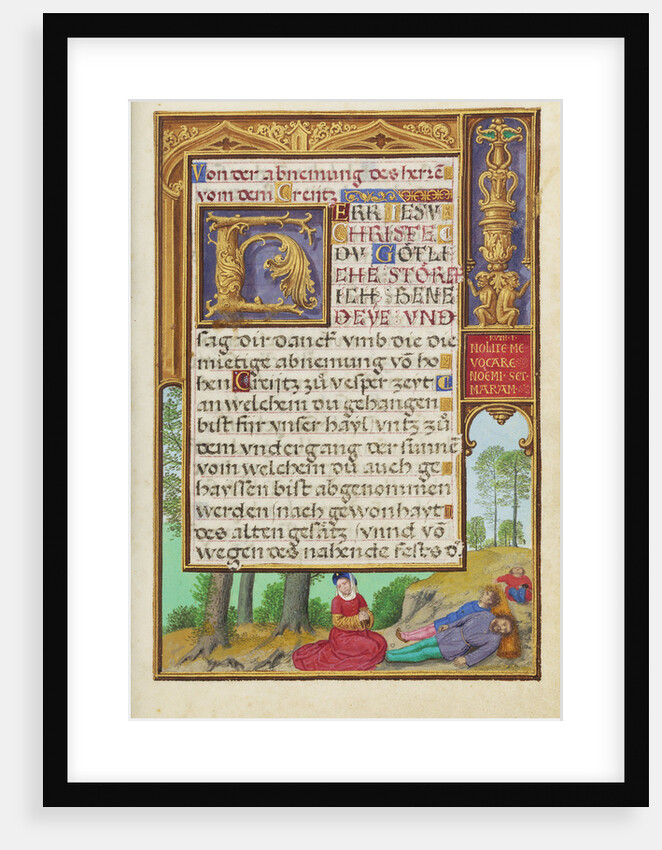 Von der abnemung des herrē
vom dem Creütz
H
ERR IESV
CHRISTE
DV GÖTLI
CHE STÖRCK
ICH BENE
DEYE VND
sag dir danck vmb die die
mietige abnemung vō ho
hen Creütz zů vesper zeyt
an welchem du gehangen
bist für vnser hayl vntz zů
dem vndergang der sunnē
vom welchem du auch ge
hayssen bist abgenommen
werden nach gewonhayt
des alten gesätz vnnd vō
wegen des nahende fests d'
RVTH · I ·
NOLITE ME
VOCARE
NOEMI · SET ·
MARAM ·